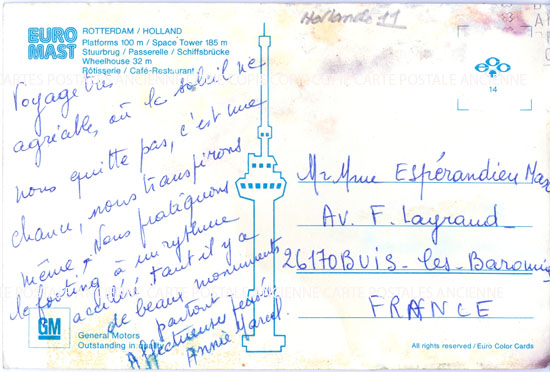 EURO
MAST
ROTTERDAM / HOLLAND
Platforms 100 m / Space Tower 185 m
Stuurbrug / Passerelle / Schiffsbrücke
Wheelhouse 32 m
Rôtisserie / Café-Restaurant
Hollande 11
14
CARTE POSTALE ANCIENNE
Voyage très
agréable, où le soleil ne
nous quitte pas, c'est une
chance, nous transpirons
même. Nous pratiquons
le footing à un rythme
accéléré tant il y a
de beaux monuments
partout.
Affectueuses pensées
Annie Marcel.
Mr Mme Espérandieu Mar
Av. F. Laygraud
26170 BUIS-les-Baronnie
FRANCE
GM
General Motors
Outstanding in quality
All rights reserved / Euro Color Cards